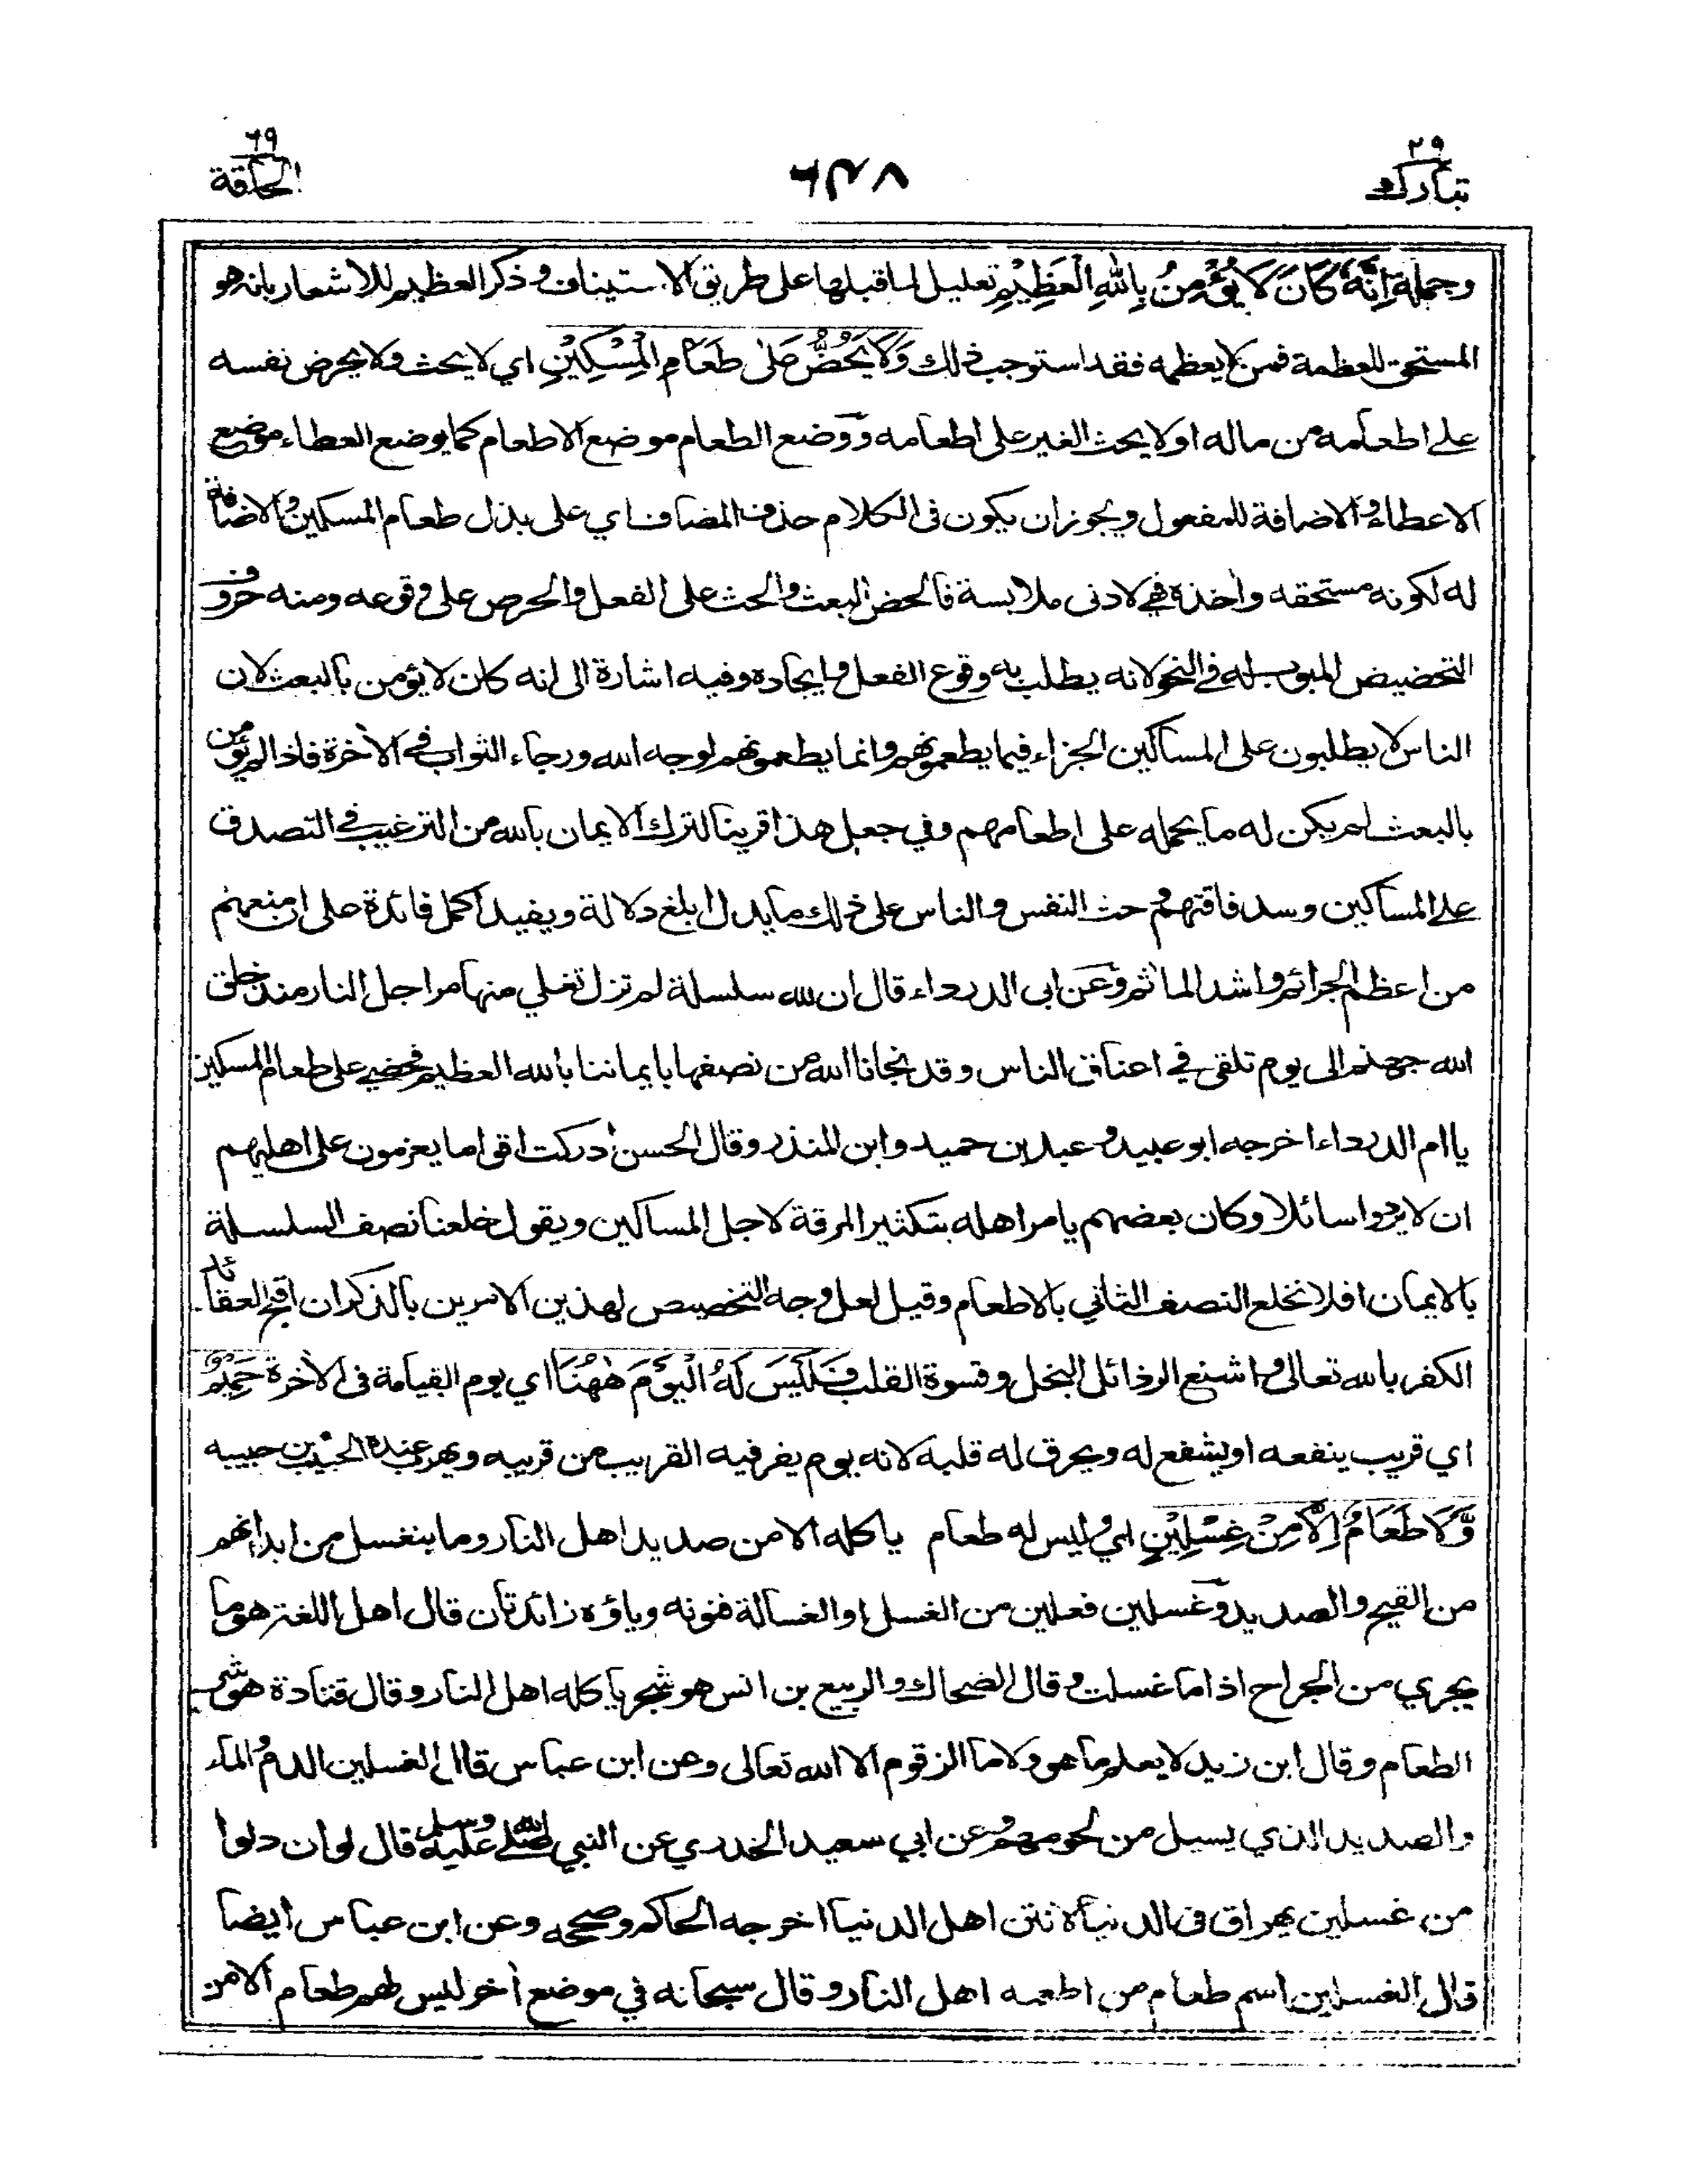 ٢٩
تبارك
٦٤٨
٦٩
الحاقة
وجملة اِنَّهٗ كَانَ لَا يُؤْمِنُ بِاللهِ الْعَظِيْمِ تعليل لما قبلها على طريق الاستيناف وذكر العظيم للاشعار بانه هو
المستحق للعظمة فمن لا يعظمه فقد استوجب ذلك وَلَا يَحُضُّ عَلٰى طَعَامِ الْمِسْكِيْنِ اي لا يحث ولا يحرض نفسه
على اطعامه من ماله او لا يحث الغير على اطعامه ووضع الطعام موضع الاطعام كما يوضع العطاء موضع
الاعطاء والاضافة للمفعول ويجوز ان يكون فى الكلام حذف المضاف اي على بذل طعام المسكين والاضافة
له لكونه مستحقه واخذه فهي لادنى ملابسة فالحض البعث والحث على الفعل والحرص على وقوعه ومنه حروف
التحضيض المبوب له في النحو لانه يطلب به وقوع الفعل وايجاده وفيه اشارة الى انه كان لا يؤمن بالبعث لان
الناس لا يطلبون على المساكين الجزاء فيما يطعمونهم وانما يطعمونهم لوجه الله ورجاء الثواب في الاٰخرة فاذا لم يؤمن
بالبعث لم يكن له ما يحمله على اطعامهم وفي جعل هذا قرينا لترك الايمان بالله من الترغيب في التصدق
على المساكين وسد فاقتهم وحث النفس والناس على ذلك ما يدل ابلغ دلالة ويفيد اكمل فائدة على ان منعهم
من اعظم الجرائم واشد الماٰثم وعن ابى الدرداء قال ان لله سلسلة لم تزل تغلي منها مراجل النار منذ خلق
الله جهنم الى يوم تلقى في اعناق الناس وقد نجانا الله من نصفها بايماننا بالله العظيم فحضي على طعام المسكين
يا ام الدرداء اخرجه ابو عبيد وعبد بن حميد وابن المنذر وقال الحسن ادركت اقواما يعزمون على اهليهم
ان لا يردوا سائلا وكان بعضهم يامر اهله بتكثير المرقة لاجل المساكين ويقول خلعنا نصف السلسلة
بالايمان افلا نخلع النصف الثاني بالاطعام وقيل لعل وجه التخصيص لهذين الامرين بالذكر ان اقبح العقائد
الكفر بالله تعالى واشنع الرذائل البخل وقسوة القلب فَلَيْسَ لَهُ الْيَوْمَ هٰهُنَا اي يوم القيامة فى الاٰخرة حَمِيْمٌ
اي قريب ينفعه او يشفع له ويحرق له قلبه لانه يوم يفر فيه القريب من قريبه ويهرب عنده الحبيب من حبيبه
وَّلَا طَعَامٌ اِلَّا مِنْ غِسْلِيْنٍ اي وليس له طعام ياكله الا من صديد اهل النار وما ينغسل من ابدانهم
من القيح والصديد وغسلين فعلين من الغسل او الغسالة فنونه وياؤه زائدتان قال اهل اللغة هو ما
يجري من الجراح اذا ما غسلت وقال الضحاك والربيع بن انس هو شجر ياكله اهل النار وقال قتادة هو شر
الطعام وقال ابن زيد لا يعلم ما هو ولا ما الزقوم الا الله تعالى وعن ابن عباس قال الغسلين الدم والماء
والصديد الذي يسيل من لحومهم وعن ابي سعيد الخدري عن النبي صلى الله عليه وسلم قال لو ان دلوا
من غسلين يهراق فى الدنيا لانتن اهل الدنيا اخرجه الحاكم وصححه وعن ابن عباس ايضا
قال الغسلين اسم طعام من اطعمة اهل النار وقال سبحانه في موضع اٰخر ليس لهم طعام الا من